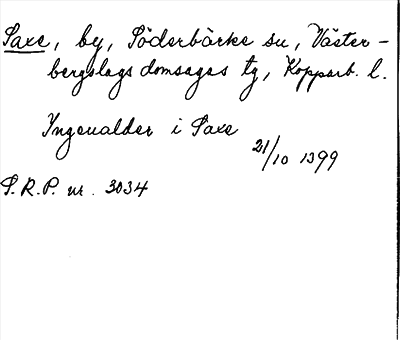 Saxe, by, Söderbärke sn, Väster-
bergslags domsagas tg, Kopparb. l.
Ingeualder i Saxe
21/10 1399
S.R.P. nr. 3034